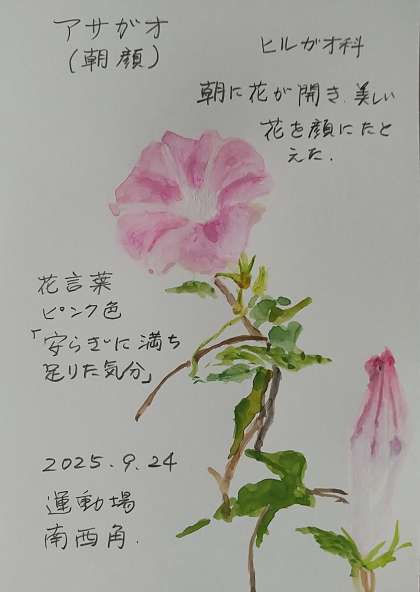 アサガオ
(朝顔)
ヒルガオ科
朝に花が開き、美しい
花を顔にたと
えた.
花言葉
ピンク色
「安らぎに満ち
足りた気分」
2025.9.24
運動場
南西角.